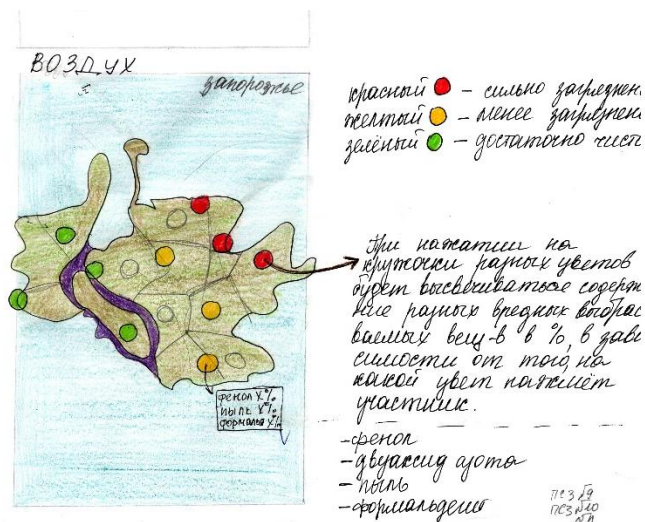 ВОЗДУХ
запорожье
красный – сильно загрязнен
желтый – менее загрязнен
зелёный – достаточно чист
При нажатии на
кружочки разных цветов
будет высвечиваться содержа
ние разных вредных выбрас
ваемых вещ-в в %, в зави
симости от того, на
какой цвет нажмёт
участник.
фенол X%
пыль X%
формальд X%
-фенол
-двуаксид азота
-пыль
-формальдегид
ПСЗ №9
ПСЗ №10